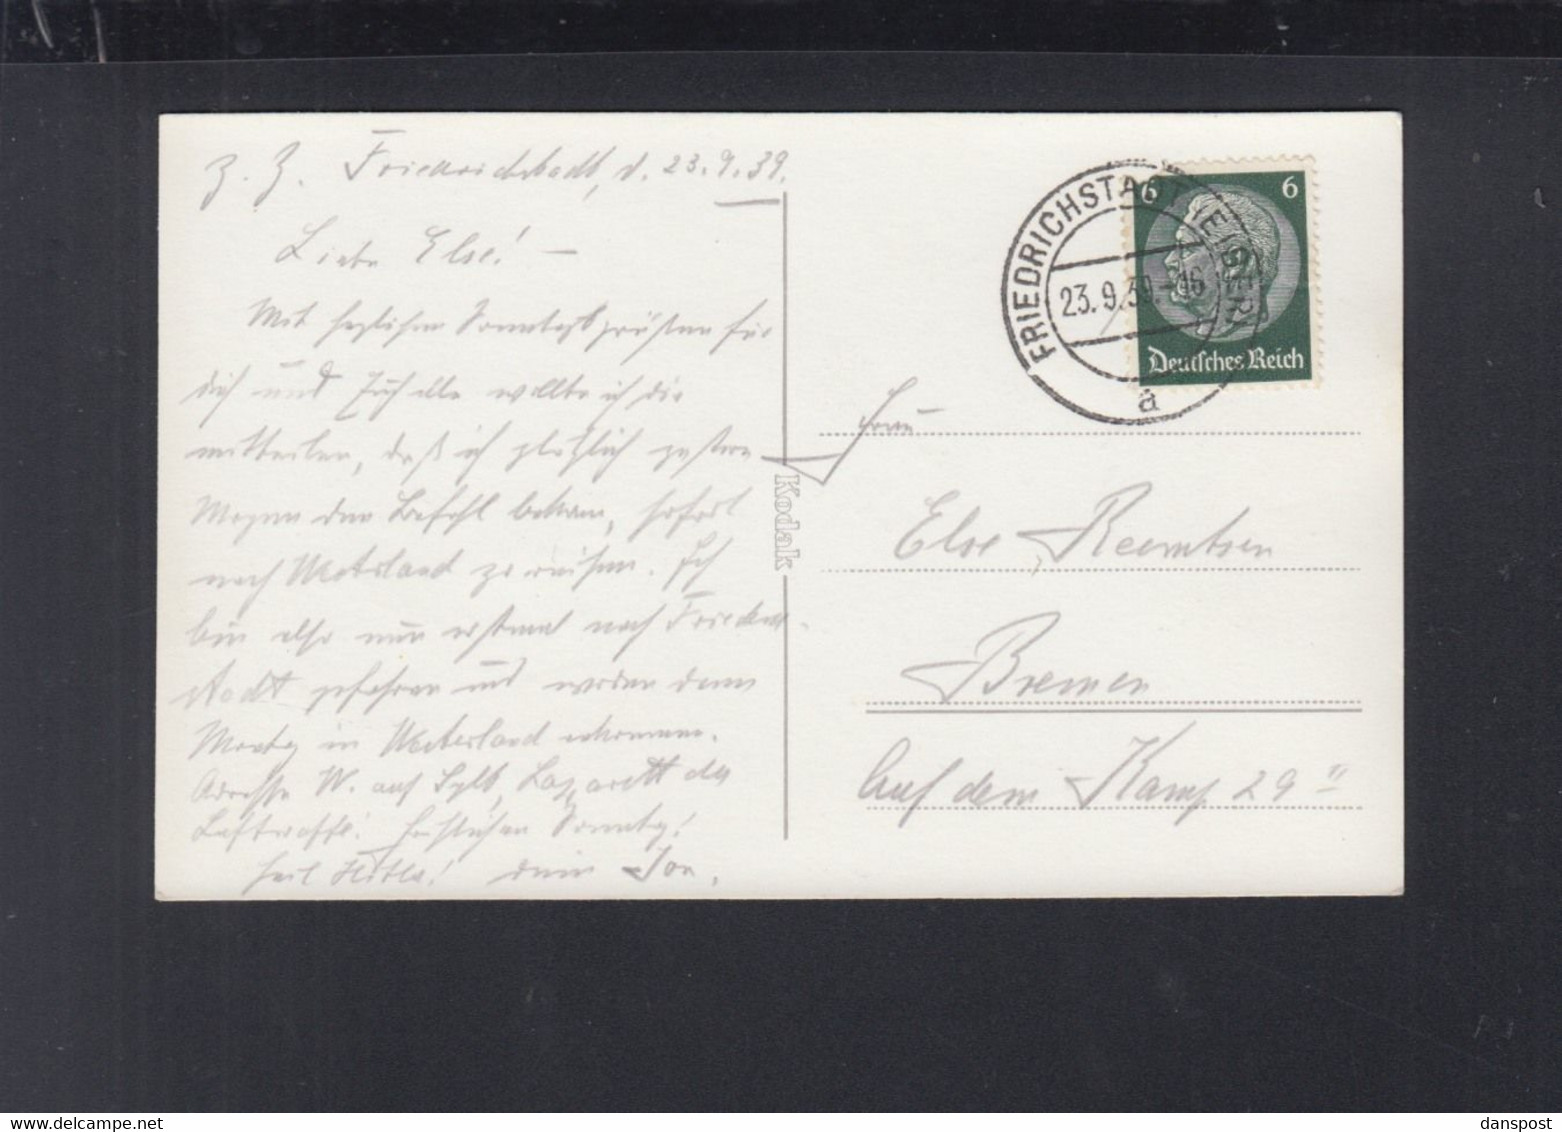 z. Z. Friedrichstadt, d. 23.9.39.
Liebe Else! —
Mit herzlichen Sonntagsgrüßen für
dich und Euch alle wollte ich dir
mitteilen, daß ich plötzlich gestern
Morgen den Befehl bekam, sofort
nach Westerland zu reisen. Ich
bin also nun erstmal nach Friedrich-
stadt gefahren und werde dann
Montag in Westerland ankommen.
Adresse W. auf Sylt, Lazarett der
Luftwaffe! Herzlichen Sonntag!
Heil Hitler! dein
Kodak
FRIEDRICHSTADT (EIDER)
23.9.39.-16
a
6 6
Deutsches Reich
Frau
Else Reemtsen
Bremen
Auf dem Kamp 29 II
danspost